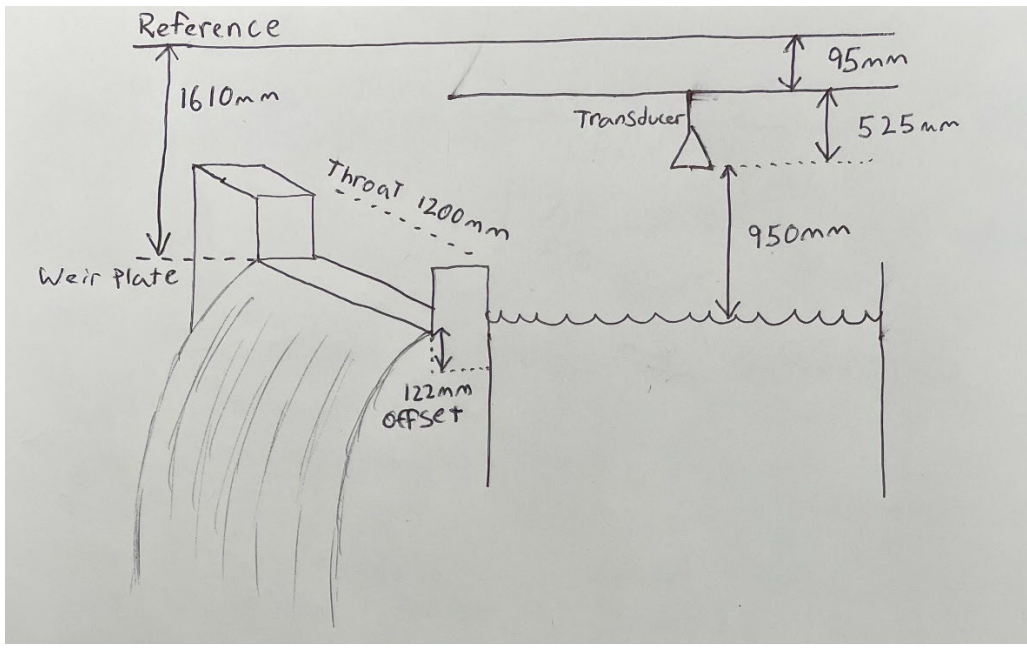 Reference
95mm
1610mm
Transducer
525mm
Throat 1200mm
950mm
Weir Plate
122mm
offset